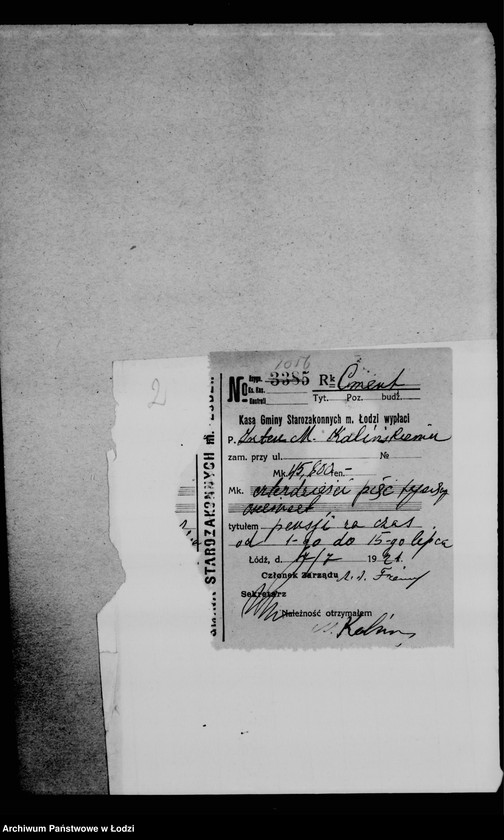 2
1016
№ Asygn. 3385 Rk Cment
Ks. Kas.
Kontroli
Tyt. Poz. budż.
Kasa Gminy Starozakonnych m. Łodzi wypłaci
P. M. Kalińskiemu
zam. przy ul. №
Mk. 45,800 fen. -
Mk. czterdzieści pięć tysięcy
osiemset
tytułem pensji za czas
od 1-go do 15-go lipca
Łódź, d. 7/7 1921.
Członek Zarządu
Sekretarz
Należność otrzymałem
M. Kaliński
STAROZAKONNYCH m. ŁODZI
Archiwum Państwowe w Łodzi